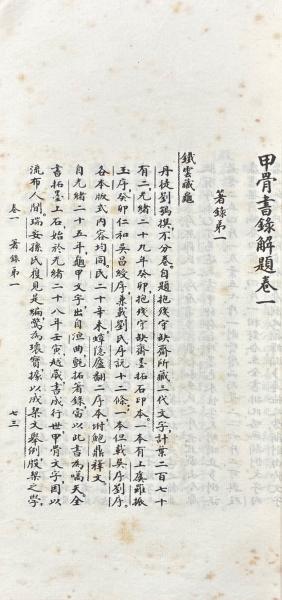 甲骨書錄解題卷一
著錄第一
鐵雲藏龜
丹徒劉鶚撰不分卷自題抱殘守缺齋所藏三代文字計葉二百七十
有二光緒二十九年癸卯抱殘守缺齋墨拓石印本一本有上虞羅振
玉序癸卯仁和吳昌綬序兼載劉氏序說十二條一本但載吳序劉序
各本版式內容均同民二十辛未蟫隱廬翻二序本附鮑鼎釋文
自光緒二十五年龜甲文字出自洹曲氈拓著錄當以此書為嚆矢全
書拓墨上石始於光緒二十八年壬寅越歲書成行世甲骨文字因以
流布人間瑞安孫氏復見是編驚為瓌寶據以成栔文舉例殷栔之學
卷一 著錄第一 七三